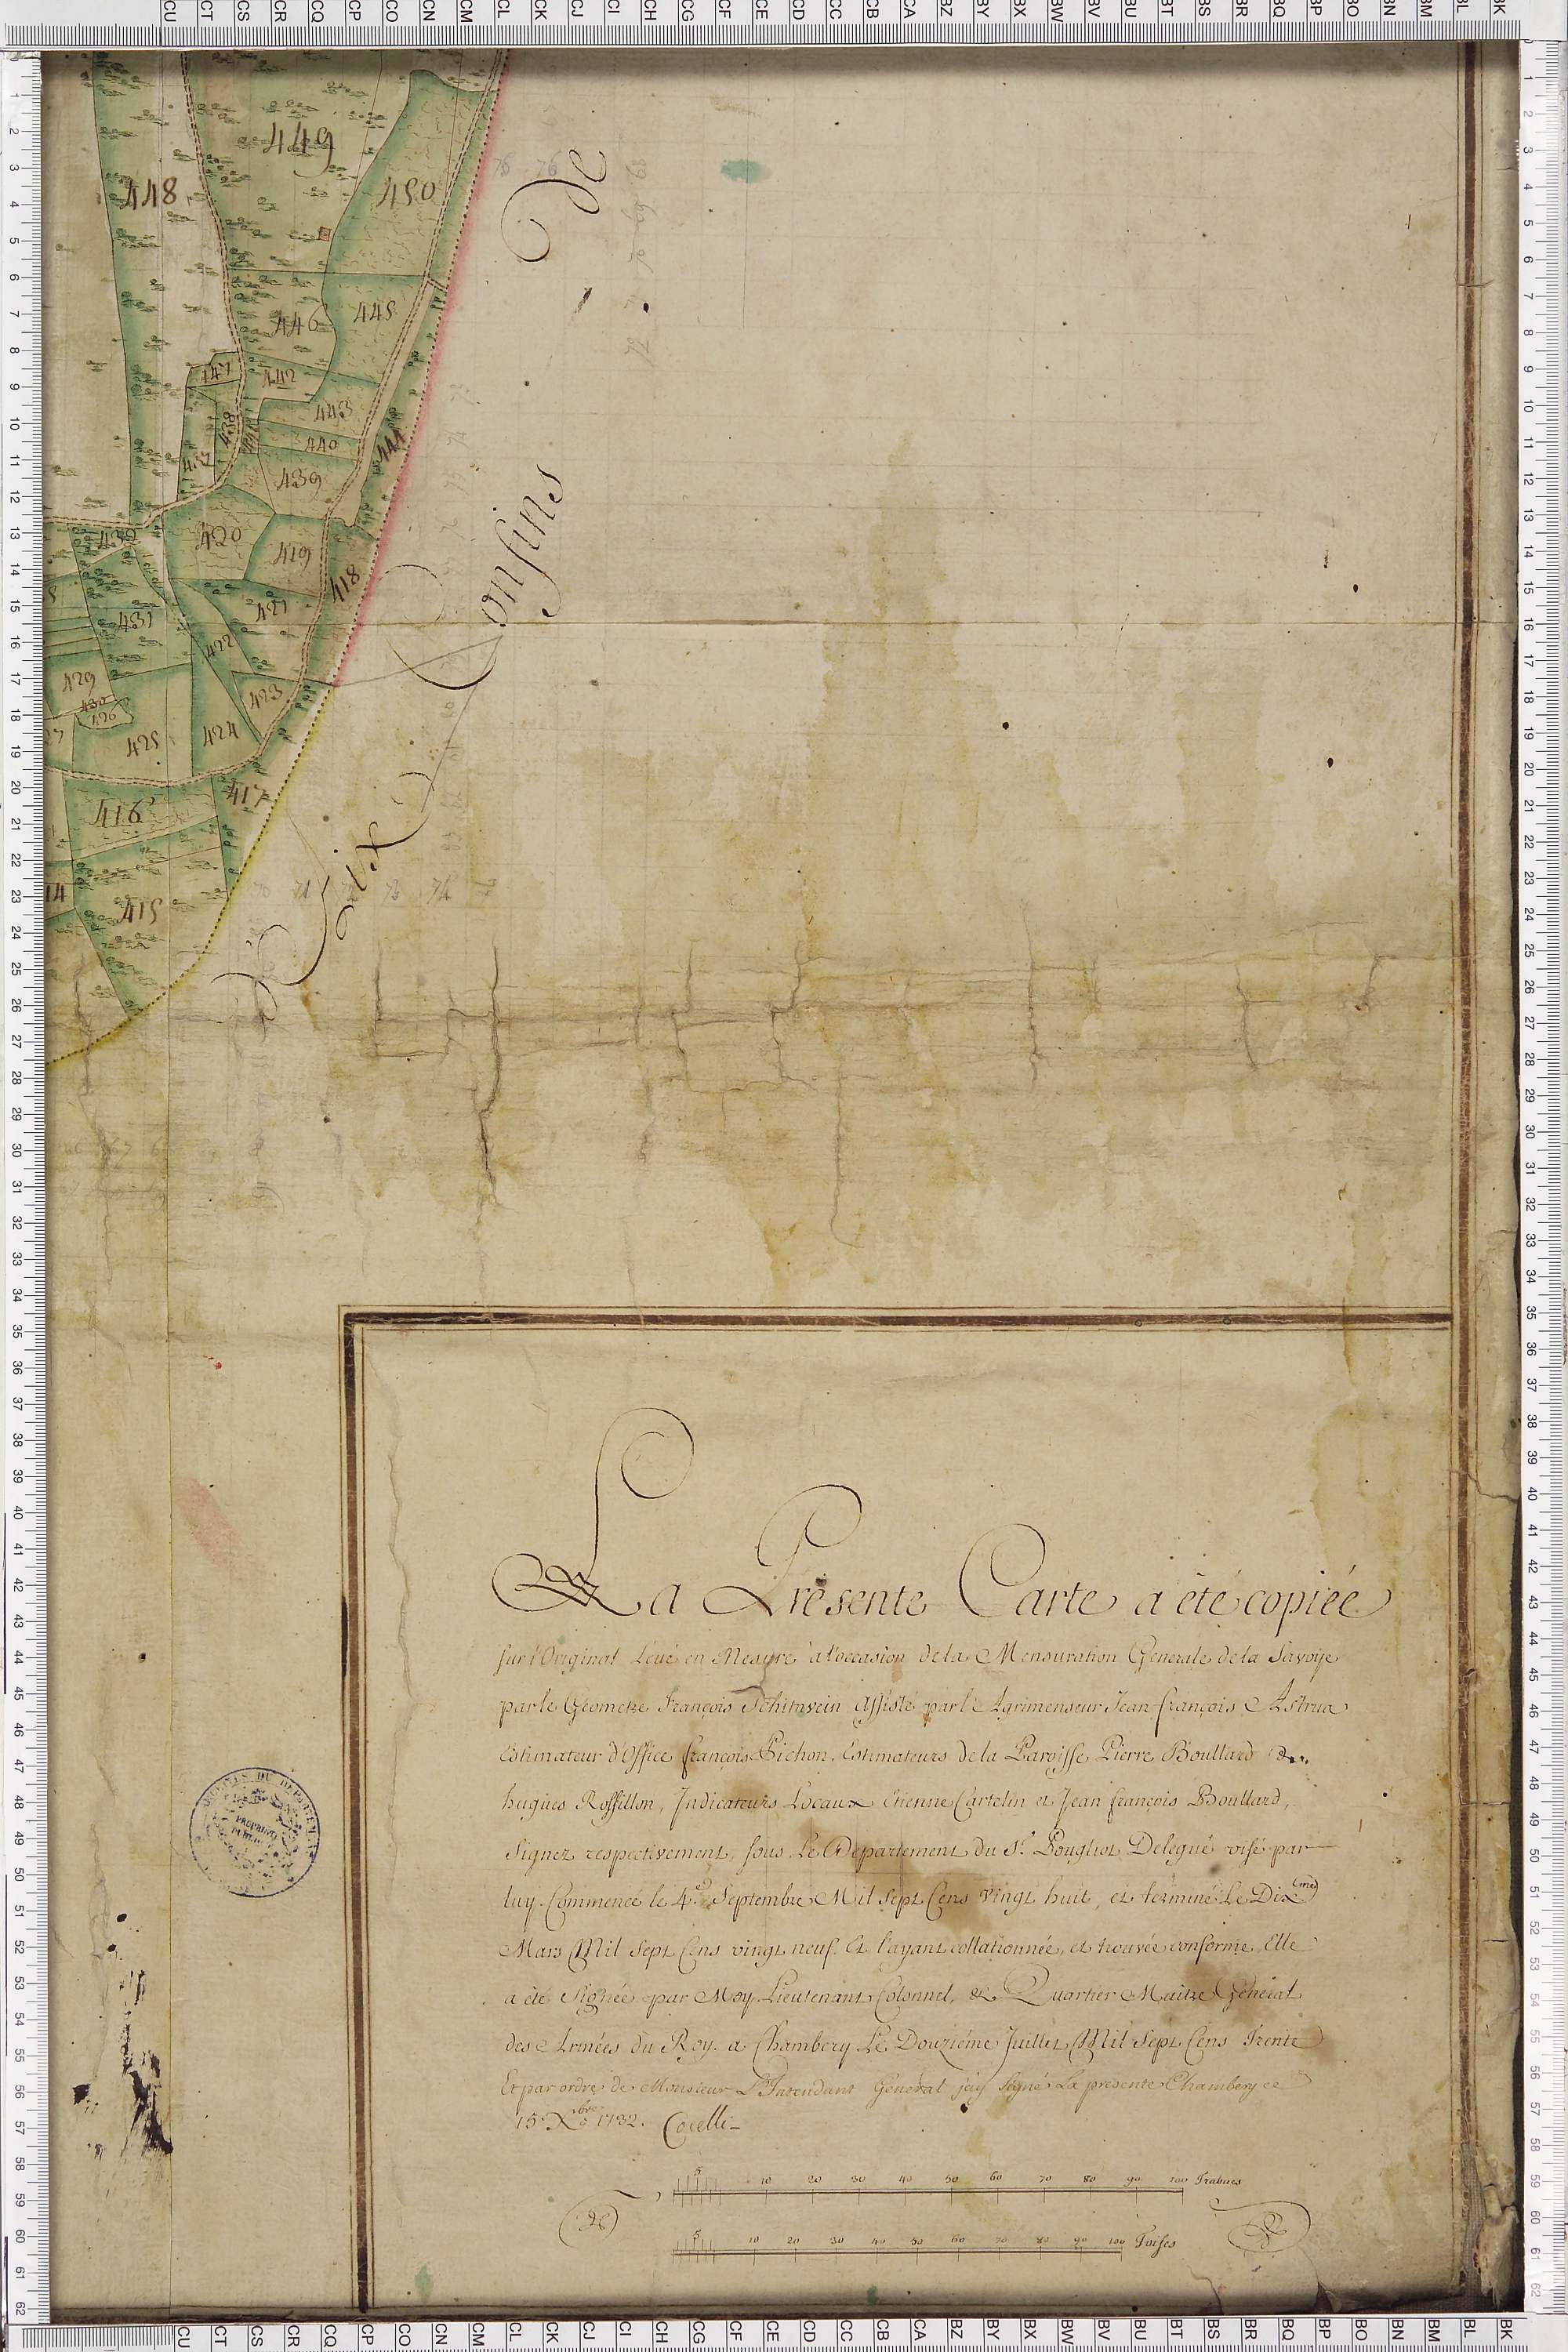 449
448
450
De
446
445
447
442
443
438
440
441
444
437
439
Confins
432
420
419
418
421
431
422
429
423
430
426
424
425
417
416
Aix
14
415
La Présente Carte a été copiée
sur l'Original Levé en Mesure à l'occasion de la Mensuration Generale de la Savoije
par le Géometre François Schitnvein assisté par l'Agrimenseur Jean françois Astrua
Estimateur d'Office françois Pichon, Estimateurs de la Paroisse Pierre Boullard &
hugues Rossillon, Indicateurs Locaux Etienne Cartelin et Jean françois Boullard,
Signez respectivement, sous Le Departement du Sr. Pougliot Delegué visé par
luy. Commencé le 4.e Septembre Mil sept Cens vingt huit, et terminé Le Dixme
Mars Mil Sept Cens vingt neuf. Et l'ayant collationnée, et trouvée conforme, Elle
a été Signée par Moy Lieutenant Colonnel, & Quartier Maitre Général
des Armées du Roy. a Chambery Le Douziéme Juillet Mil Sept Cens Trente
Et par ordre de Monsieur L'Intendant Général j'ay signé La presente Chambery ce
15 Xbre 1732. Cocelli
5 10 20 30 40 50 60 70 80 90 100 Trabucs
5 10 20 30 40 50 60 70 80 90 100 Toises
PROPRIÉTÉ
PUBLIQUE